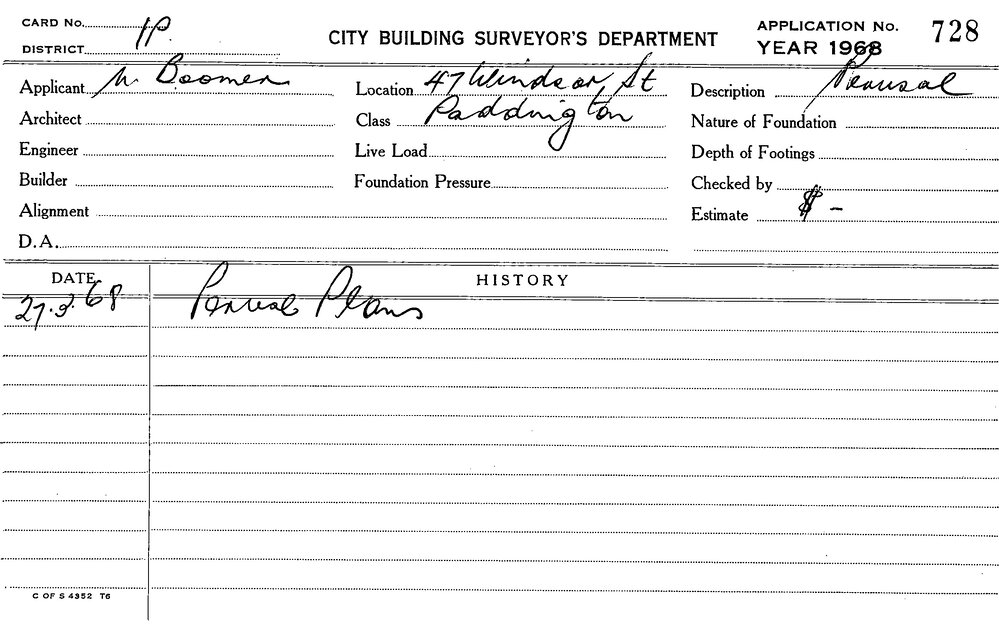 CARD No. 1P.
DISTRICT
CITY BUILDING SURVEYOR'S DEPARTMENT
APPLICATION No. 728
YEAR 1968
Applicant Boomer
Location 47 Windsor St
Description Perusal
Architect
Class Paddington
Nature of Foundation
Engineer
Live Load
Depth of Footings
Builder
Foundation Pressure
Checked by
Alignment
Estimate $ -
D.A.
DATE
HISTORY
27.3.68 Perusal Plans
C OF S 4352 T6